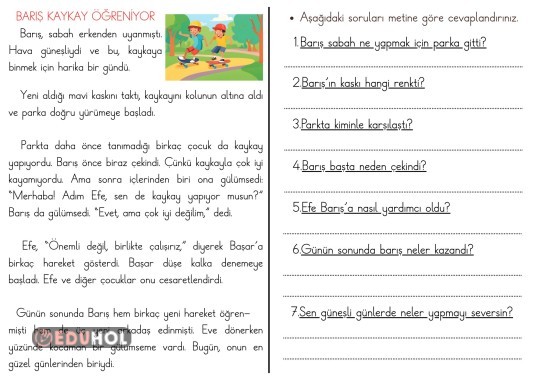 BARIŞ KAYKAY ÖĞRENİYOR
Barış, sabah erkenden uyanmıştı.
Hava güneşliydi ve bu, kaykaya
binmek için harika bir gündü.
Yeni aldığı mavi kaskını taktı, kaykayını kolunun altına aldı
ve parka doğru yürümeye başladı.
Parkta daha önce tanımadığı birkaç çocuk da kaykay
yapıyordu. Barış önce biraz çekindi. Çünkü kaykayla çok iyi
kayamıyordu. Ama sonra içlerinden biri ona gülümsedi:
"Merhaba! Adım Efe, sen de kaykay yapıyor musun?"
Barış da gülümsedi. "Evet, ama çok iyi değilim," dedi.
Efe, "Önemli değil, birlikte çalışırız," diyerek Başar'a
birkaç hareket gösterdi. Başar düşe kalka denemeye
başladı. Efe ve diğer çocuklar onu cesaretlendirdi.
Günün sonunda Barış hem birkaç yeni hareket öğren-
mişti hem de yeni arkadaş edinmişti. Eve dönerken
yüzünde kocaman bir gülümseme vardı. Bugün, onun en
güzel günlerinden biriydi.
EDUHOL
• Aşağıdaki soruları metine göre cevaplandırınız.
1.Barış sabah ne yapmak için parka gitti?
2.Barış'ın kaskı hangi renkti?
3.Parkta kiminle karşılaştı?
4.Barış başta neden çekindi?
5.Efe Barış'a nasıl yardımcı oldu?
6.Günün sonunda barış neler kazandı?
7.Sen güneşli günlerde neler yapmayı seversin?